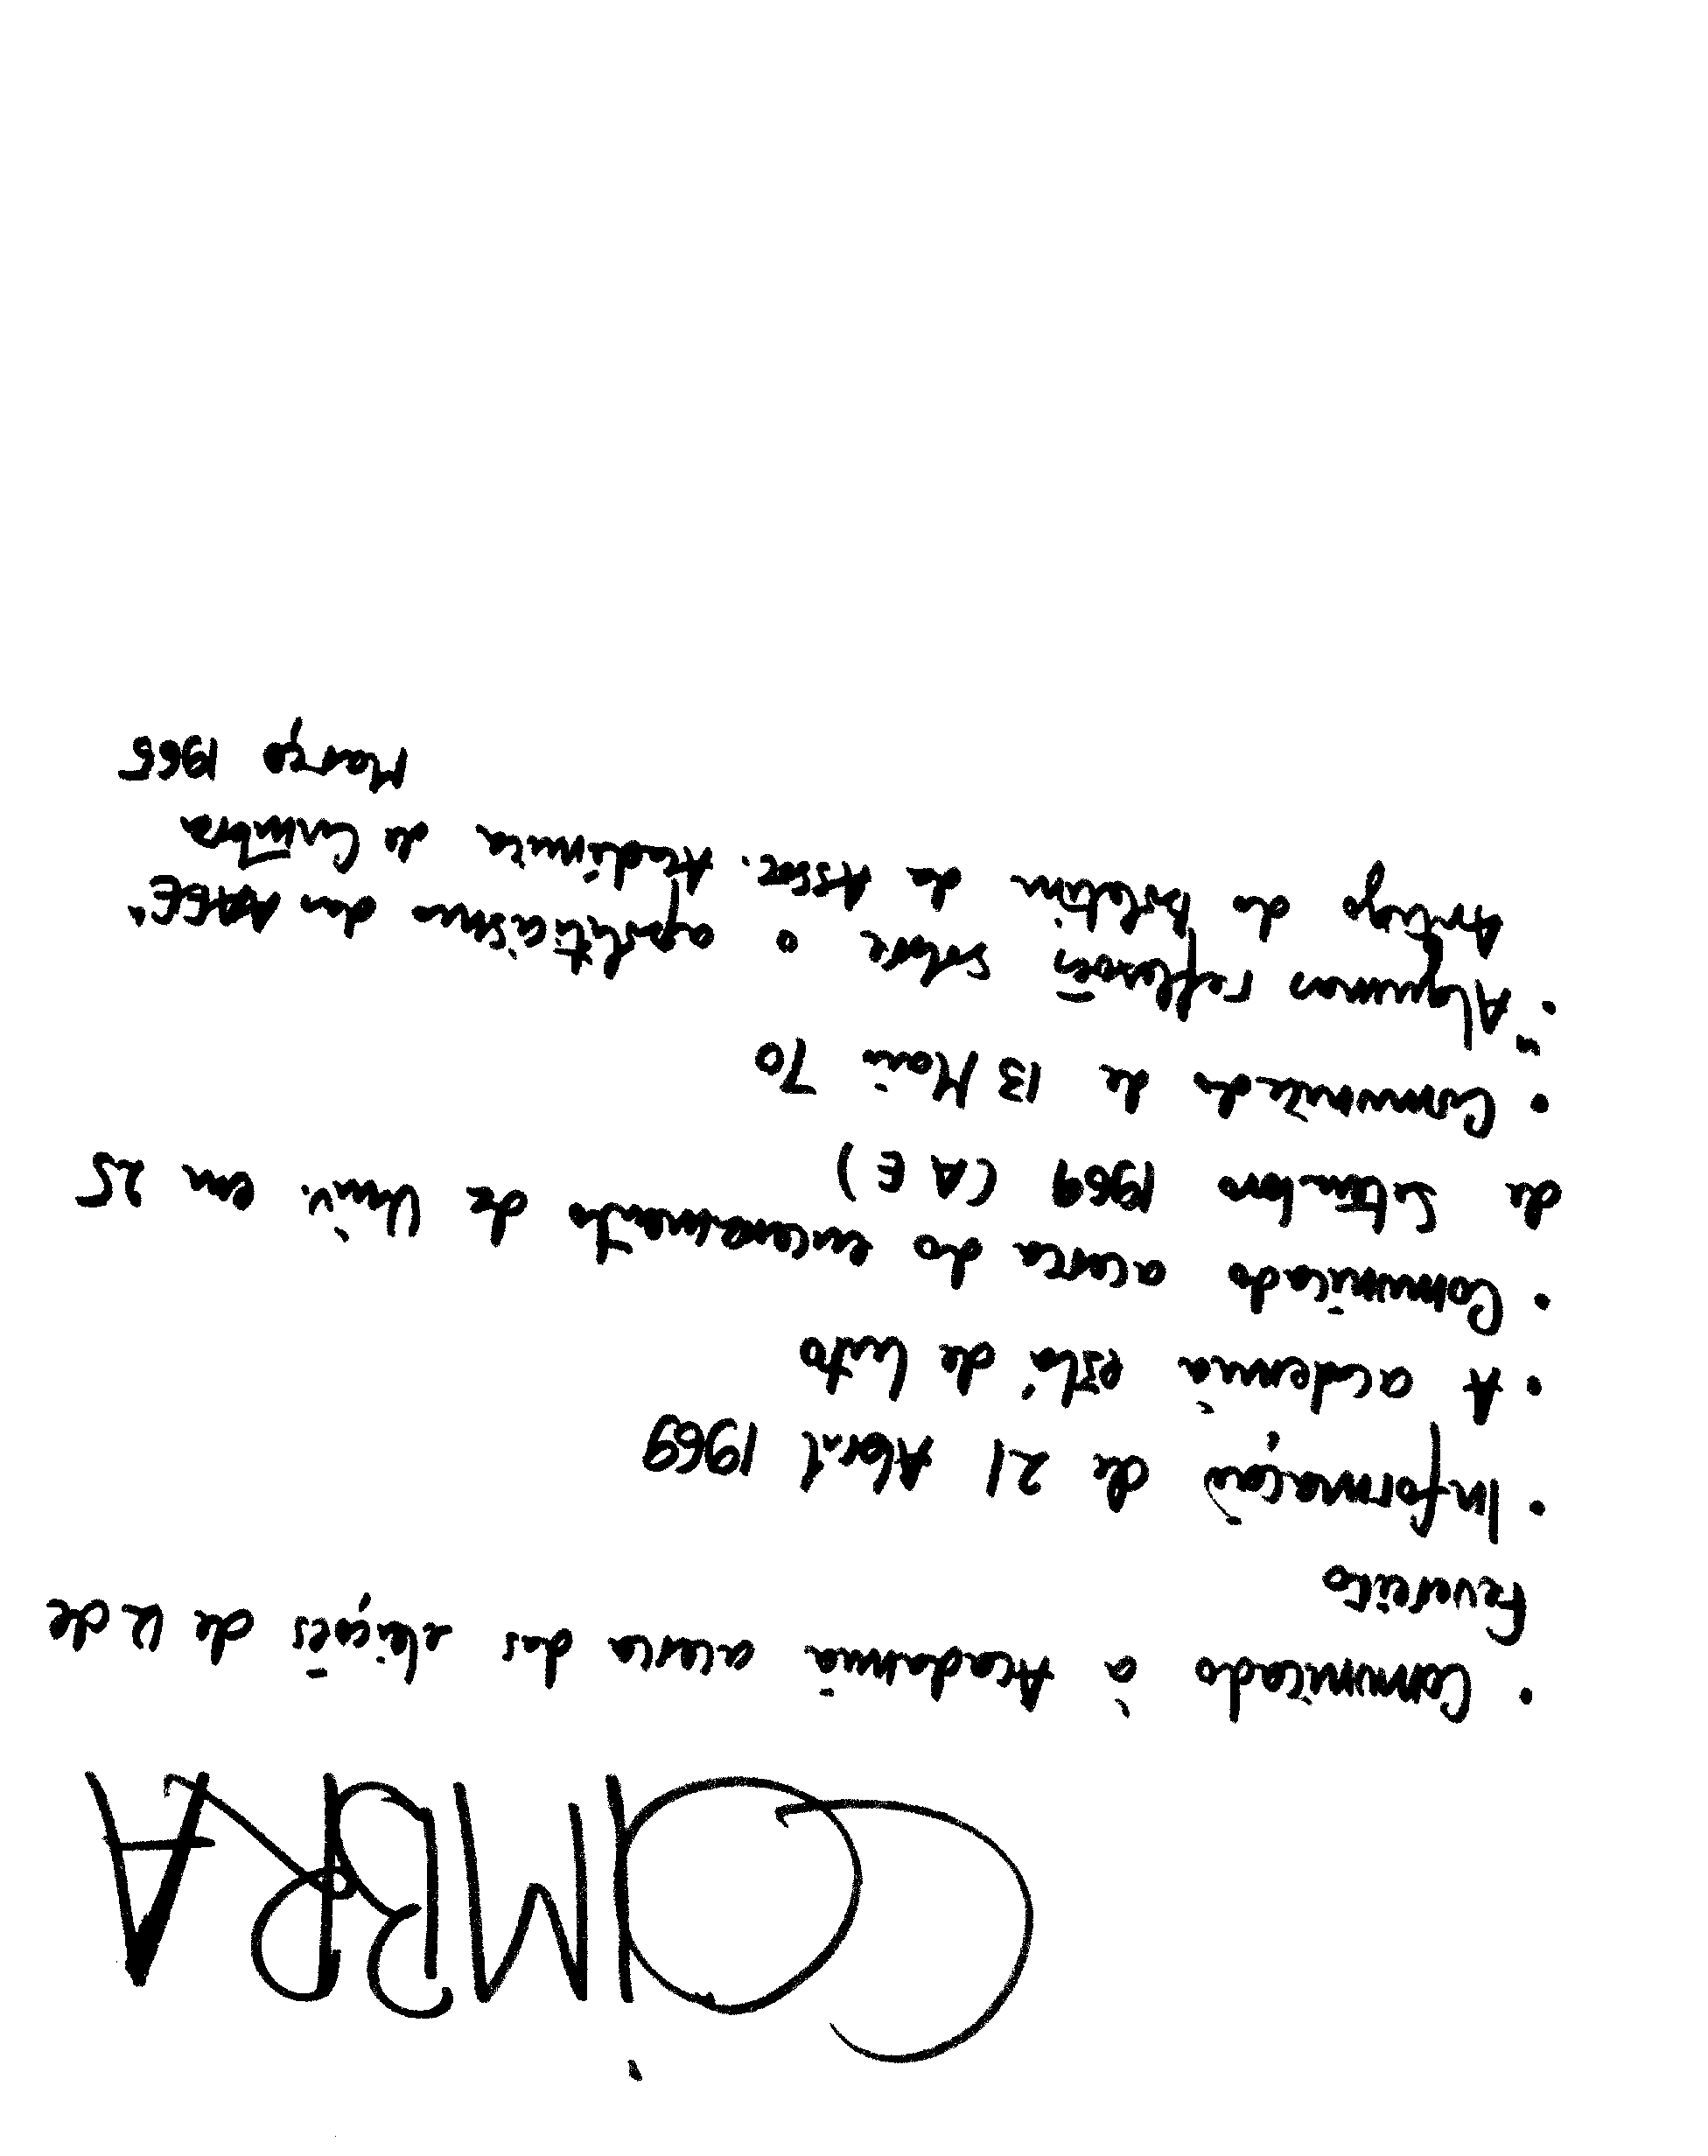 COIMBRA
• Comunicado à Academia acerca das eleições de 12 de
Fevereiro
• Informação de 21 Abril 1969
• A academia está de luto
• Comunicado acerca do encerramento de Univ. em 25
de Setembro 1969 (A E)
• Comunicado de 13 Maio 70
• "Algumas reflexões sobre o apoliticismo das AAEE"
Artigo do Boletim da Assoc. Académica de Coimbra
Março 1965